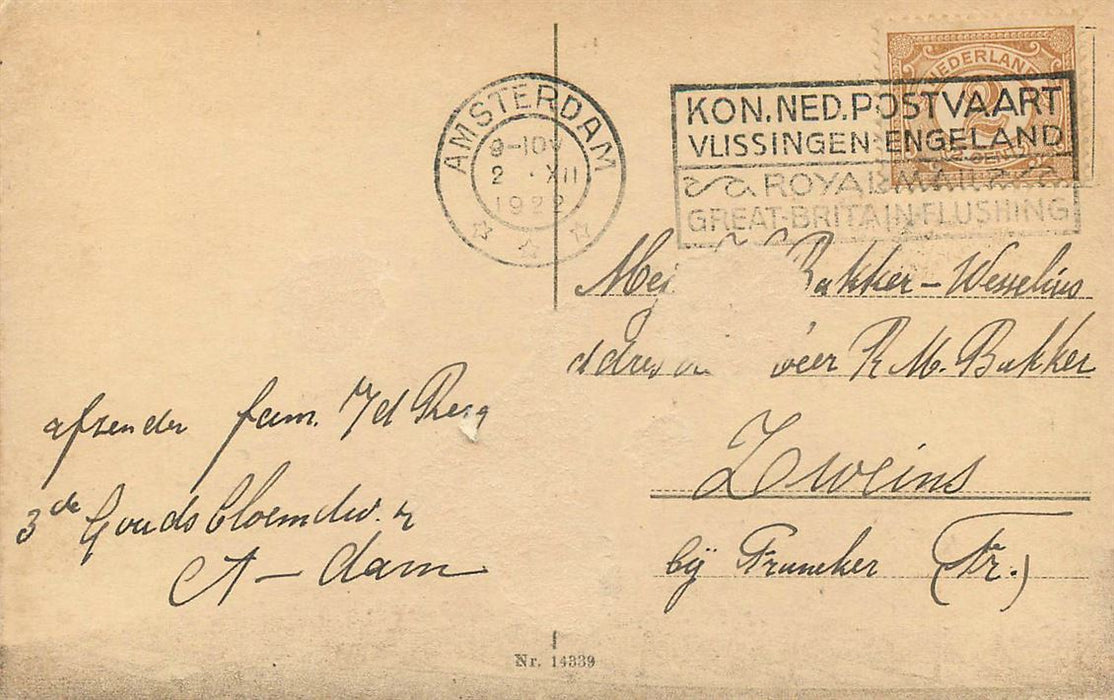 AMSTERDAM
9-10V
2 · XII
1922
NEDERLAND
2
KON. NED. POSTVAART
VLISSINGEN-ENGELAND
ROYAL MAIL
GREAT-BRITAIN-FLUSHING
Bakker-Wesselius
R M. Bakker
Zweins
bij Franeker (Fr.)
afzender fam. v/d Berg
3de Goudsbloemdw.
A-dam
Nr. 14339